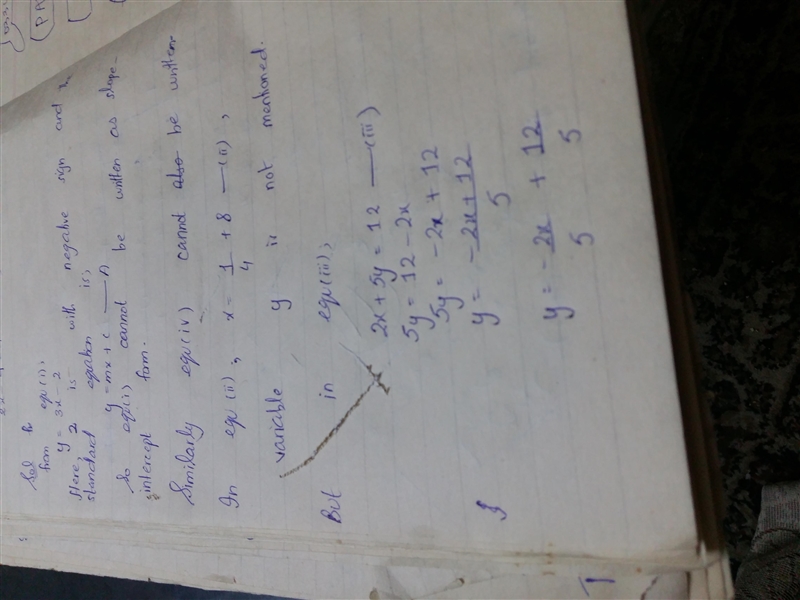 Sol
from equ(i),
y = 3x - 2
Here, 2 is with negative sign and
standard equation is;
y = mx + c
So equ(i) cannot be written as slope-
intercept form.
Similarly equ(iv) cannot also be written
In equ(ii), x = 1/4 + 8 —(ii),
variable y is not mentioned.
But in equ(iii),
2x + 5y = 12 —(iii)
5y = 12 - 2x
5y = -2x + 12
y = -2x + 12 / 5
y = -2x/5 + 12/5